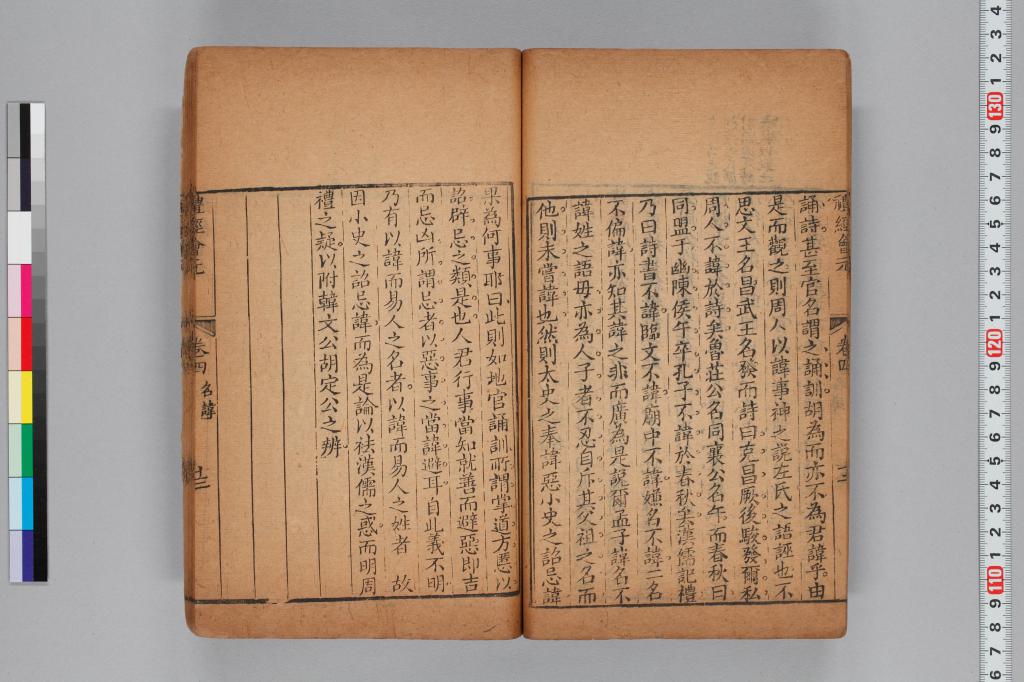 誦詩甚至官名謂之誦訓胡為而亦不為君諱乎由
是而觀之則周人以諱事神之說左氏之語誣也不
思文王名昌武王名發而詩曰克昌厥後駿發爾私
周人不諱於詩矣魯莊公名同襄公名午而春秋曰
同盟于幽陳侯午卒孔子不諱於春秋矣漢儒記禮
乃曰詩書不諱臨文不諱廟中不諱嫌名不諱二名
不偏諱亦知其諱之非而廣為是說爾孟子諱名不
諱姓之語毋亦為人子者不忍自斥其父祖之名而
他則未嘗諱也然則太史之奉諱惡小史之詔忌諱
禮經會元
卷四
果為何事耶曰此則如地官誦訓所謂掌道方慝以
詔辟忌之類是也人君行事當知就善而避惡即吉
而忌凶所謂忌者以惡事之當諱避耳自此義不明
乃有以諱而易人之名者以諱而易人之姓者 故
因小史之詔忌諱而為是論以祛漢儒之惑而明周
禮之疑以附韓文公胡定公之辨
禮經會元
卷四
名諱